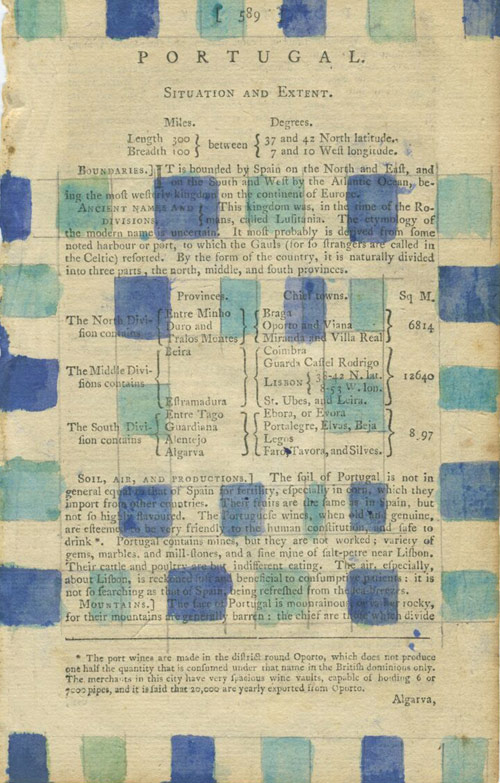 [ 589
PORTUGAL.
SITUATION AND EXTENT.
Miles. Degrees.
Length 300 } between { 37 and 42 North latitude.
Breadth 100 } { 7 and 10 West longitude.
BOUNDARIES.] IT is bounded by Spain on the North and East, and
on the South and West by the Atlantic Ocean, be-
ing the most westerly kingdom on the continent of Europe.
ANCIENT NAMES AND } This kingdom was, in the time of the Ro-
DIVISIONS. } mans, called Lusitania. The etymology of
the modern name is uncertain. It most probably is derived from some
noted harbour or port, to which the Gauls (for so strangers are called in
the Celtic) resorted. By the form of the country, it is naturally divided
into three parts, the north, middle, and south provinces.
Provinces. Chief towns. Sq M.
The North Divi-
sion contains { Entre Minho
Duro and
Tralos Montes } { Braga
Oporto and Viana
Miranda and Villa Real } 6814
The Middle Divi-
sions contains { Beira
Estramadura } { Coimbra
Guarda Castel Rodrigo
LISBON { 38-42 N. lat.
8-53 W. lon.
St. Ubes, and Leira. } 12640
The South Divi-
sion contains { Entre Tago
Guardiana
Alentejo
Algarva } { Ebora, or Evora
Portalegre, Elvas, Beja
Legos
Faro, Tavora, and Silves. } 8,97
SOIL, AIR, AND PRODUCTIONS.] The soil of Portugal is not in
general equal to that of Spain for fertility, especially in corn, which they
import from other countries. Their fruits are the same as in Spain, but
not so highly flavoured. The Portuguese wines, when old and genuine,
are esteemed to be very friendly to the human constitution, and safe to
drink *. Portugal contains mines, but they are not worked; variety of
gems, marbles, and mill-stones, and a fine mine of salt-petre near Lisbon.
Their cattle and poultry are but indifferent eating. The air, especially,
about Lisbon, is reckoned soft and beneficial to consumptive patients: it is
not so searching as that of Spain, being refreshed from the sea-breezes.
MOUNTAINS.] The face of Portugal is mountainous, or rather rocky,
for their mountains are generally barren: the chief are those which divide
* The port wines are made in the district round Oporto, which does not produce
one half the quantity that is consumed under that name in the British dominions only.
The merchants in this city have very spacious wine vaults, capable of holding 6 or
7000 pipes, and it is said that 20,000 are yearly exported from Oporto.
Algarva,